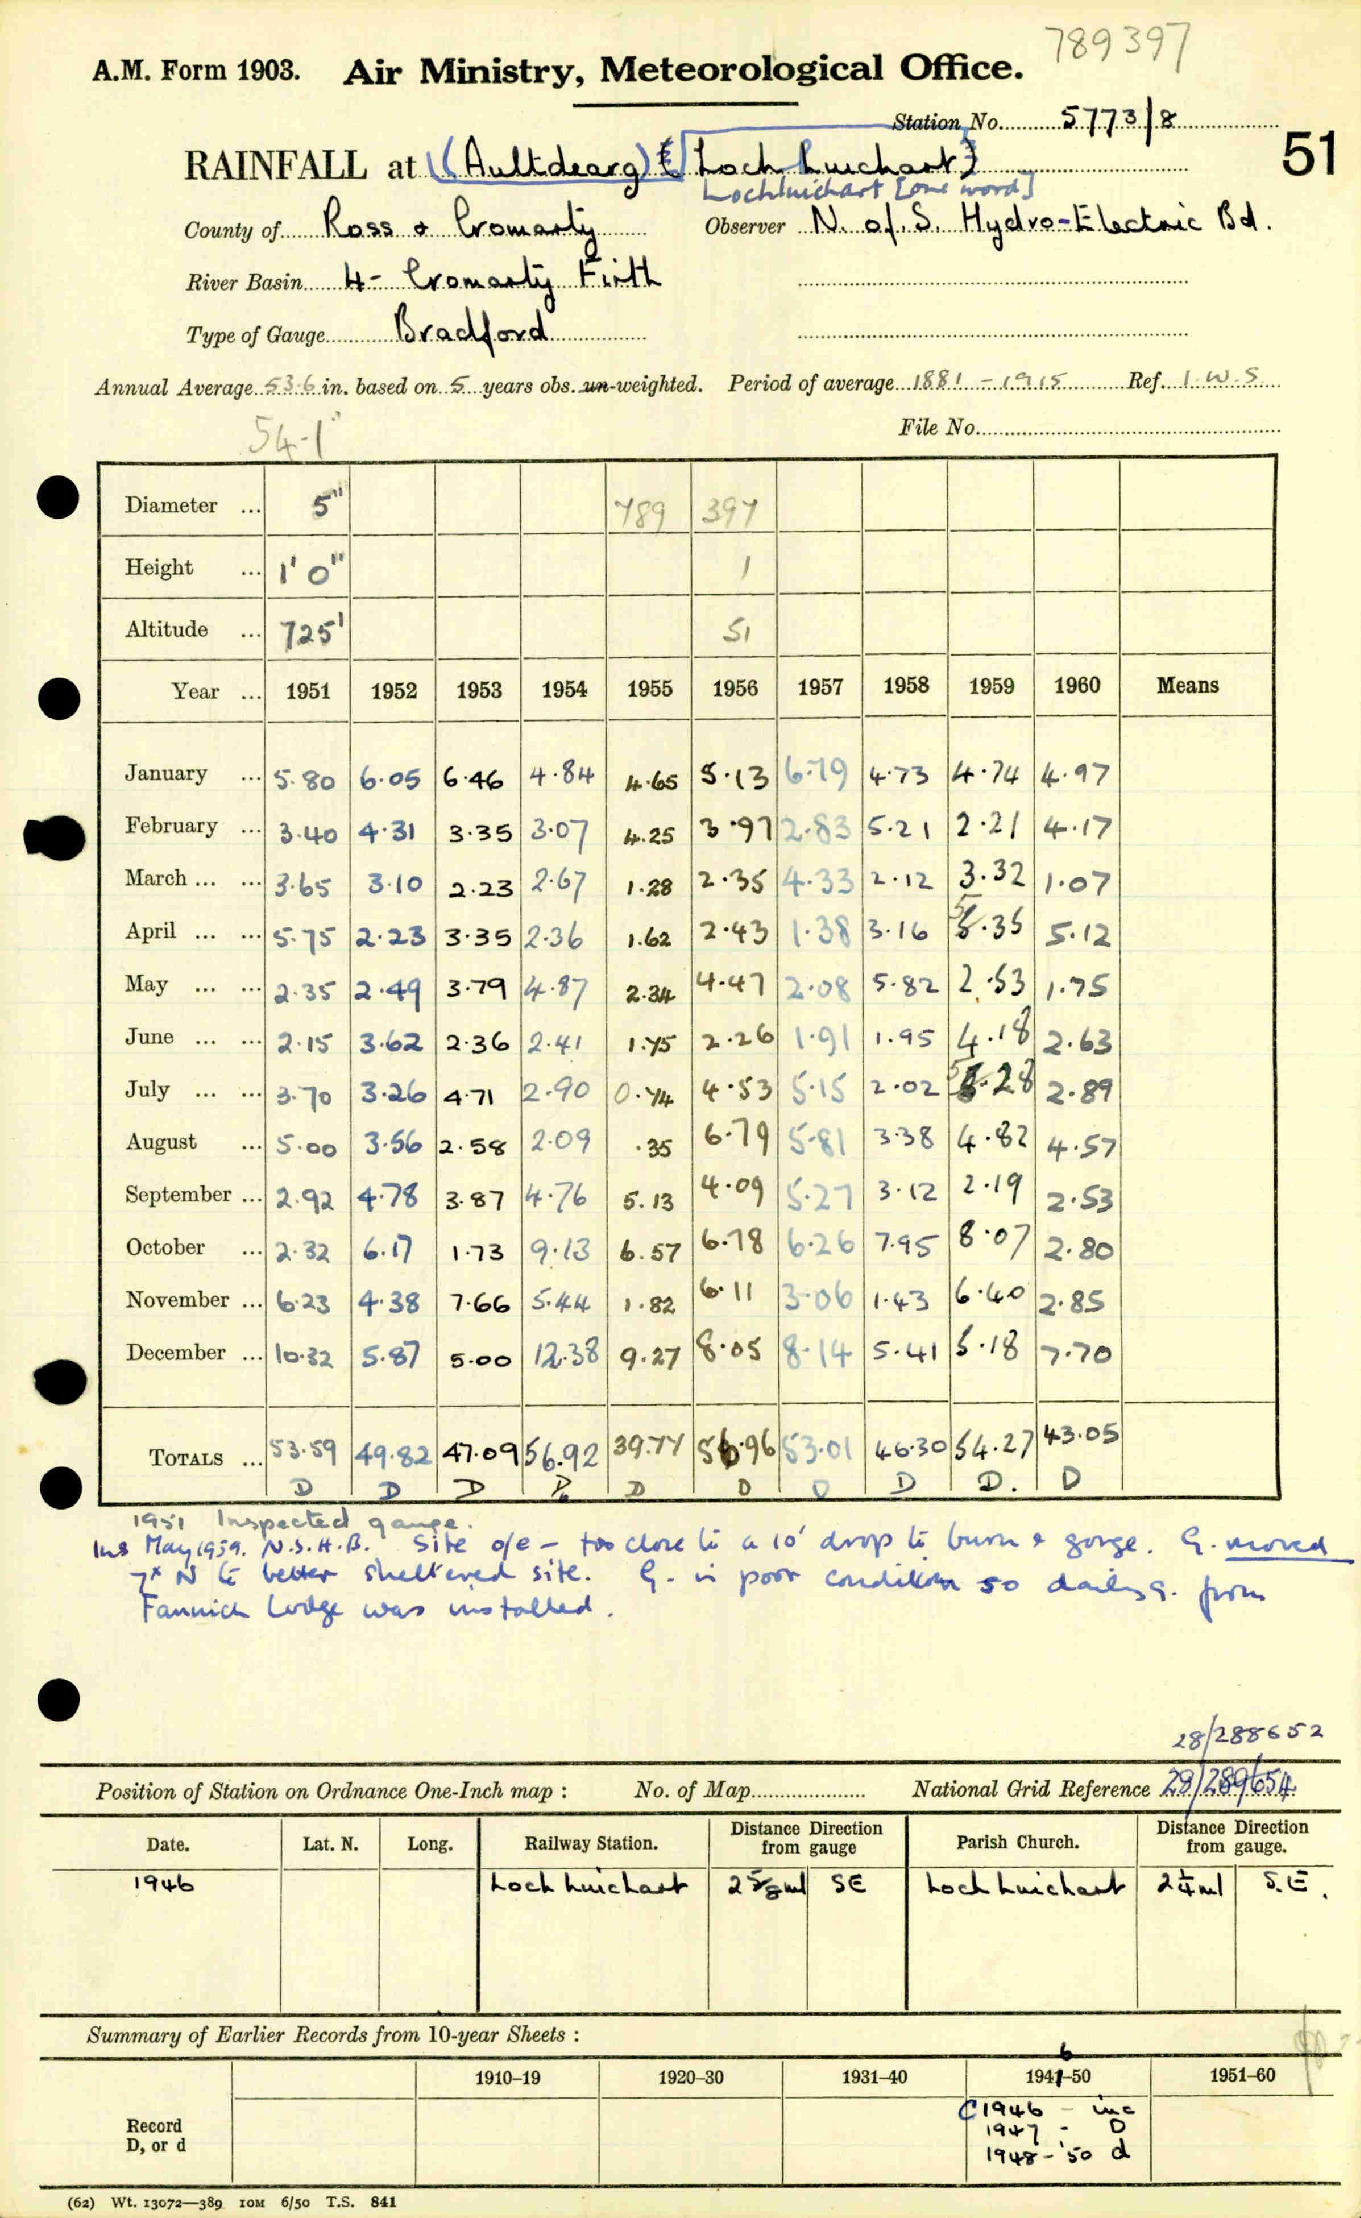 789397
A.M. Form 1903. Air Ministry, Meteorological Office.
Station No. 5773/8
51
RAINFALL at (Aultdearg) (Loch Luichart)
Lochluichart [one word]
County of Ross & Cromarty Observer N. of. S. Hydro-Electric Bd.
River Basin 4- Cromarty Firth
Type of Gauge Bradford
Annual Average 53.6 in. based on 5 years obs. un-weighted. Period of average 1881 - 1915 Ref. I.W.S
File No.
54.1"
Diameter ... 5" 789 397
Height ... 1' 0" 1
Altitude ... 725' 51
Year ... 1951 1952 1953 1954 1955 1956 1957 1958 1959 1960 Means
January ... 5.80 6.05 6.46 4.84 4.65 5.13 6.79 4.73 4.74 4.97
February ... 3.40 4.31 3.35 3.07 4.25 3.97 2.83 5.21 2.21 4.17
March ... ... 3.65 3.10 2.23 2.67 1.28 2.35 4.33 2.12 3.32 1.07
April ... ... 5.75 2.23 3.35 2.36 1.62 2.43 1.38 3.16 5.35 5.12
May ... ... 2.35 2.49 3.79 4.87 2.24 4.47 2.08 5.82 2.53 1.75
June ... ... 2.15 3.62 2.36 2.41 1.75 2.26 1.91 1.95 4.18 2.63
July ... ... 3.70 3.26 4.71 2.90 0.74 4.53 5.15 2.02 5.28 2.89
August ... 5.00 3.56 2.58 2.09 .35 6.79 5.81 3.38 4.82 4.57
September ... 2.92 4.78 3.87 4.76 5.13 4.09 5.27 3.12 2.19 2.53
October ... 2.32 6.17 1.73 9.13 6.57 6.78 6.26 7.95 8.07 2.80
November ... 6.23 4.38 7.66 5.44 1.82 6.11 3.06 1.43 6.40 2.85
December ... 10.32 5.87 5.00 12.38 9.27 8.05 8.14 5.41 5.18 7.70
TOTALS ... 53.59 49.82 47.09 56.92 39.77 56.96 53.01 46.30 54.27 43.05
D D D D D D D D D. D
1951 Inspected gauge.
Ins May 1959. N.S.H.B. Site o/e - too close to a 10' drop to burn & gorge. G. moved
7x N to better sheltered site. G. in poor condition so daily g. from
Fannich Lodge was installed.
28/288652
Position of Station on Ordnance One-Inch map : No. of Map National Grid Reference 28/289654
Date. Lat. N. Long. Railway Station. Distance Direction from gauge Parish Church. Distance Direction from gauge.
1946 Loch Luichart 2 5/8 ml SE Loch Luichart 2 1/4 ml S.E.
Summary of Earlier Records from 10-year Sheets :
6
1910–19 1920–30 1931–40 1941–50 1951–60
Record
D, or d
C 1946 - inc
1947 - D
1948 - '50 d
(62) Wt. 13072—389 IOM 6/50 T.S. 841